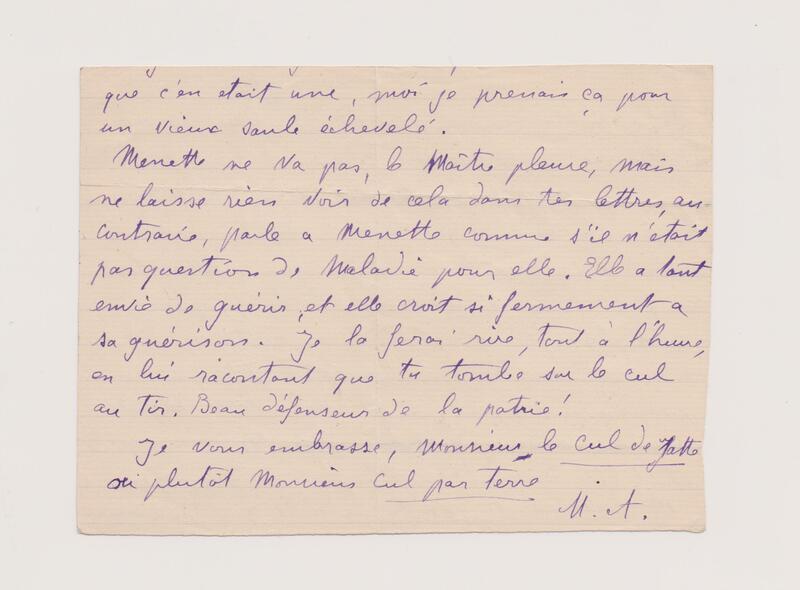 que c'en etait une, moi je prenais ça pour
un vieux saule échevelé.
Menette ne va pas, le Maître pleure, mais
ne laisse rien voir de cela dans tes lettres, au
contraire, parle a Menette comme s'il n'était
pas question de maladie pour elle. Elle a tant
envie de guérir, et elle croit si fermement a
sa guérison. Je la ferai rire, tout à l'heure,
en lui racontant que tu tombe sur le cul
au tir. Beau défenseur de la patrie!
Je vous embrasse, Monsieur le Cul de Jatte
ou plutôt Monsieur Cul par terre
M. A.